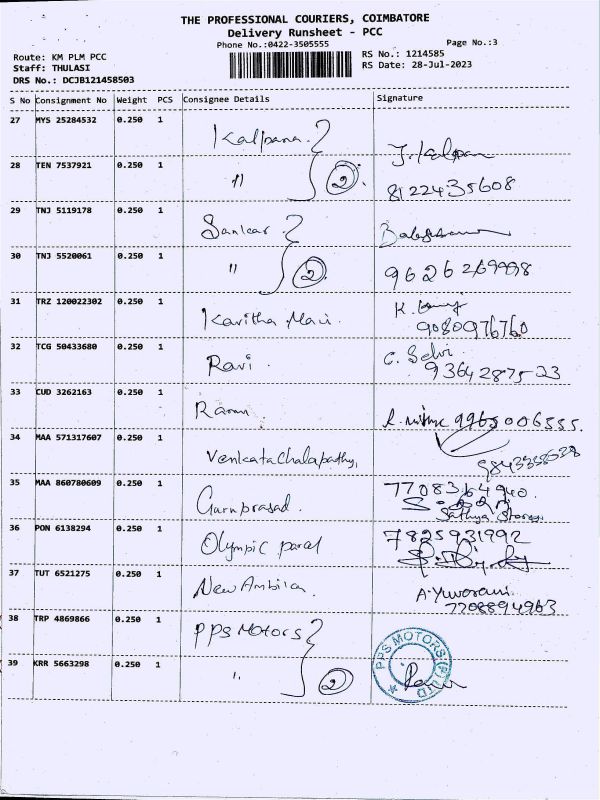 THE PROFESSIONAL COURIERS, COIMBATORE
Delivery Runsheet - PCC
Phone No.:0422-3505555
Page No.:3
Route: KM PLM PCC
RS No.: 1214585
Staff: THULASI
RS Date: 28-Jul-2023
DRS No.: DCJB121458503
S No Consignment No Weight PCS Consignee Details Signature
27 MYS 25284532 0.250 1 Kalpana
28 TEN 7537921 0.250 1 " 2
8122435608
29 TNJ 5119178 0.250 1 Sankar
30 TNJ 5520061 0.250 1 " 2
31 TRZ 120022302 0.250 1 Kavitha Mani K.
9080976760
32 TCG 50433680 0.250 1 Ravi C. Selvi
9364287523
33 CUD 3262163 0.250 1 Raman 9965006555
34 MAA 571317607 0.250 1 Venkatachalapathy,
35 MAA 860780609 0.250 1 Guruprasad 7708364940
Sathya Stores
36 PON 6138294 0.250 1 Olympic 7825931992
37 TUT 6521275 0.250 1 New A. Yuvarani
7708894963
38 TRP 4869866 0.250 1 PPS Motors PPS MOTORS (P) LTD
39 KRR 5663298 0.250 1 " 2